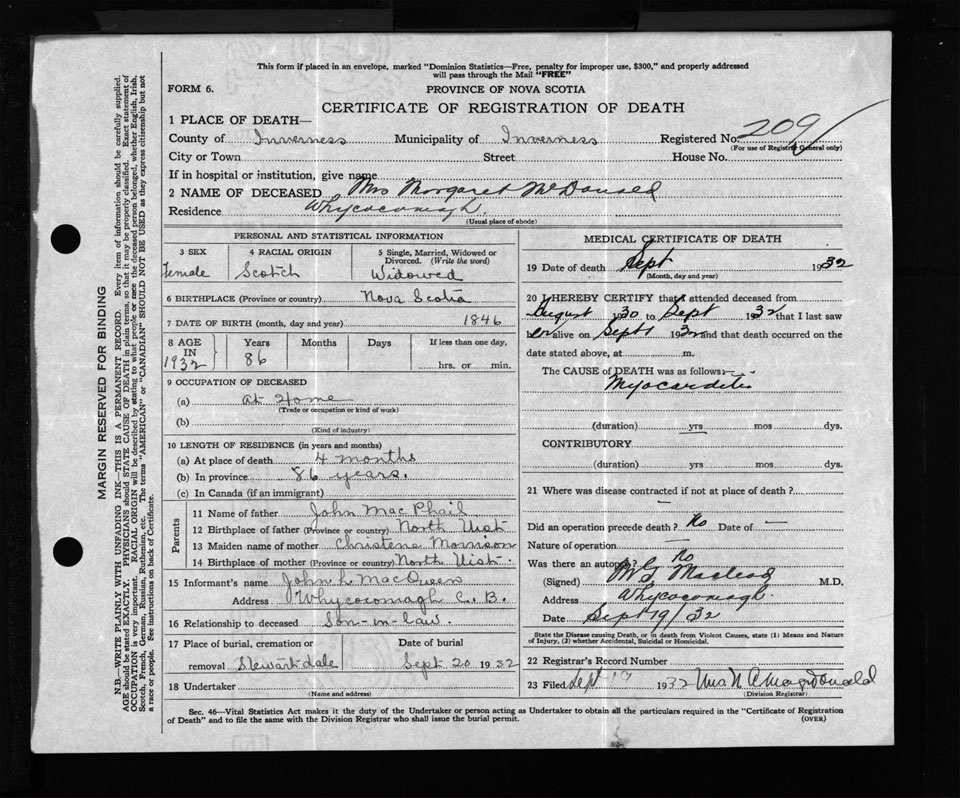 This form if placed in an envelope, marked "Dominion Statistics—Free, penalty for improper use, $300," and properly addressed
will pass through the Mail "FREE"
FORM 6.
PROVINCE OF NOVA SCOTIA
CERTIFICATE OF REGISTRATION OF DEATH
1 PLACE OF DEATH—
County of Inverness Municipality of Inverness Registered No. 209
(For use of Registrar General only)
City or Town Street House No.
If in hospital or institution, give name
2 NAME OF DECEASED Mrs Morgaret McDonald
Residence Whycocomagh.
(Usual place of abode)
PERSONAL AND STATISTICAL INFORMATION
3 SEX 4 RACIAL ORIGIN 5 Single, Married, Widowed or
Divorced. (Write the word)
Female Scotch Widowed
6 BIRTHPLACE (Province or country) Nova Scotia
7 DATE OF BIRTH (month, day and year) 1846
8 AGE Years Months Days If less than one day,
IN
1932 86 hrs. or min.
9 OCCUPATION OF DECEASED
(a) at Home
(Trade or occupation or kind of work)
(b)
(Kind of industry)
10 LENGTH OF RESIDENCE (in years and months)
(a) At place of death 4 months
(b) In province 86 years.
(c) In Canada (if an immigrant)
Parents
11 Name of father John Mac Phail
12 Birthplace of father (Province or country) North Uist
13 Maiden name of mother Christene Morrison
14 Birthplace of mother (Province or country) North Uist
15 Informant's name John L MacQueen
Address Whycocomagh C. B.
16 Relationship to deceased Son-in-law.
17 Place of burial, cremation or Date of burial
removal Stewartdale Sept 20 1932
18 Undertaker
(Name and address)
MEDICAL CERTIFICATE OF DEATH
19 Date of death Sept 1932
(Month, day and year)
20 I HEREBY CERTIFY that I attended deceased from
August 1930 to Sept 1932 that I last saw
her alive on Sept 1932 and that death occurred on
date stated above, at m.
The CAUSE of DEATH was as follows:
Myocardites
(duration) yrs mos dys.
CONTRIBUTORY
(duration) yrs mos dys.
21 Where was disease contracted if not at place of death?
Did an operation precede death? No Date of —
Nature of operation —
Was there an autopsy? No
(Signed) Macleod M.D.
Address Whycocomagh.
Date Sept 19/32
State the Disease causing Death, or in death from Violent Causes, state (1) Means and Nature
of Injury, (2) whether Accidental, Suicidal or Homicidal.
22 Registrar's Record Number
23 Filed Sept 1932 Mrs N A MacDonald
(Division Registrar)
Sec. 46—Vital Statistics Act makes it the duty of the Undertaker or person acting as Undertaker to obtain all the particulars required in the "Certificate of Registration
of Death" and to file the same with the Division Registrar who shall issue the burial permit.
(OVER)
MARGIN RESERVED FOR BINDING
N.B.—WRITE PLAINLY WITH UNFADING INK—THIS IS A PERMANENT RECORD. Every item of information should be carefully supplied.
AGE should be stated EXACTLY. PHYSICIANS should STATE CAUSE OF DEATH in plain terms, so that it may be properly classified. Exact statement of
OCCUPATION is very important. RACIAL ORIGIN will be described by stating to what people or race the deceased person belonged, whether English, Irish,
Scotch, French, German, Russian, Ruthenian, etc. The terms "AMERICAN" or "CANADIAN" SHOULD NOT BE USED as they express citizenship but not
a race or people. See instructions on back of Certificate.